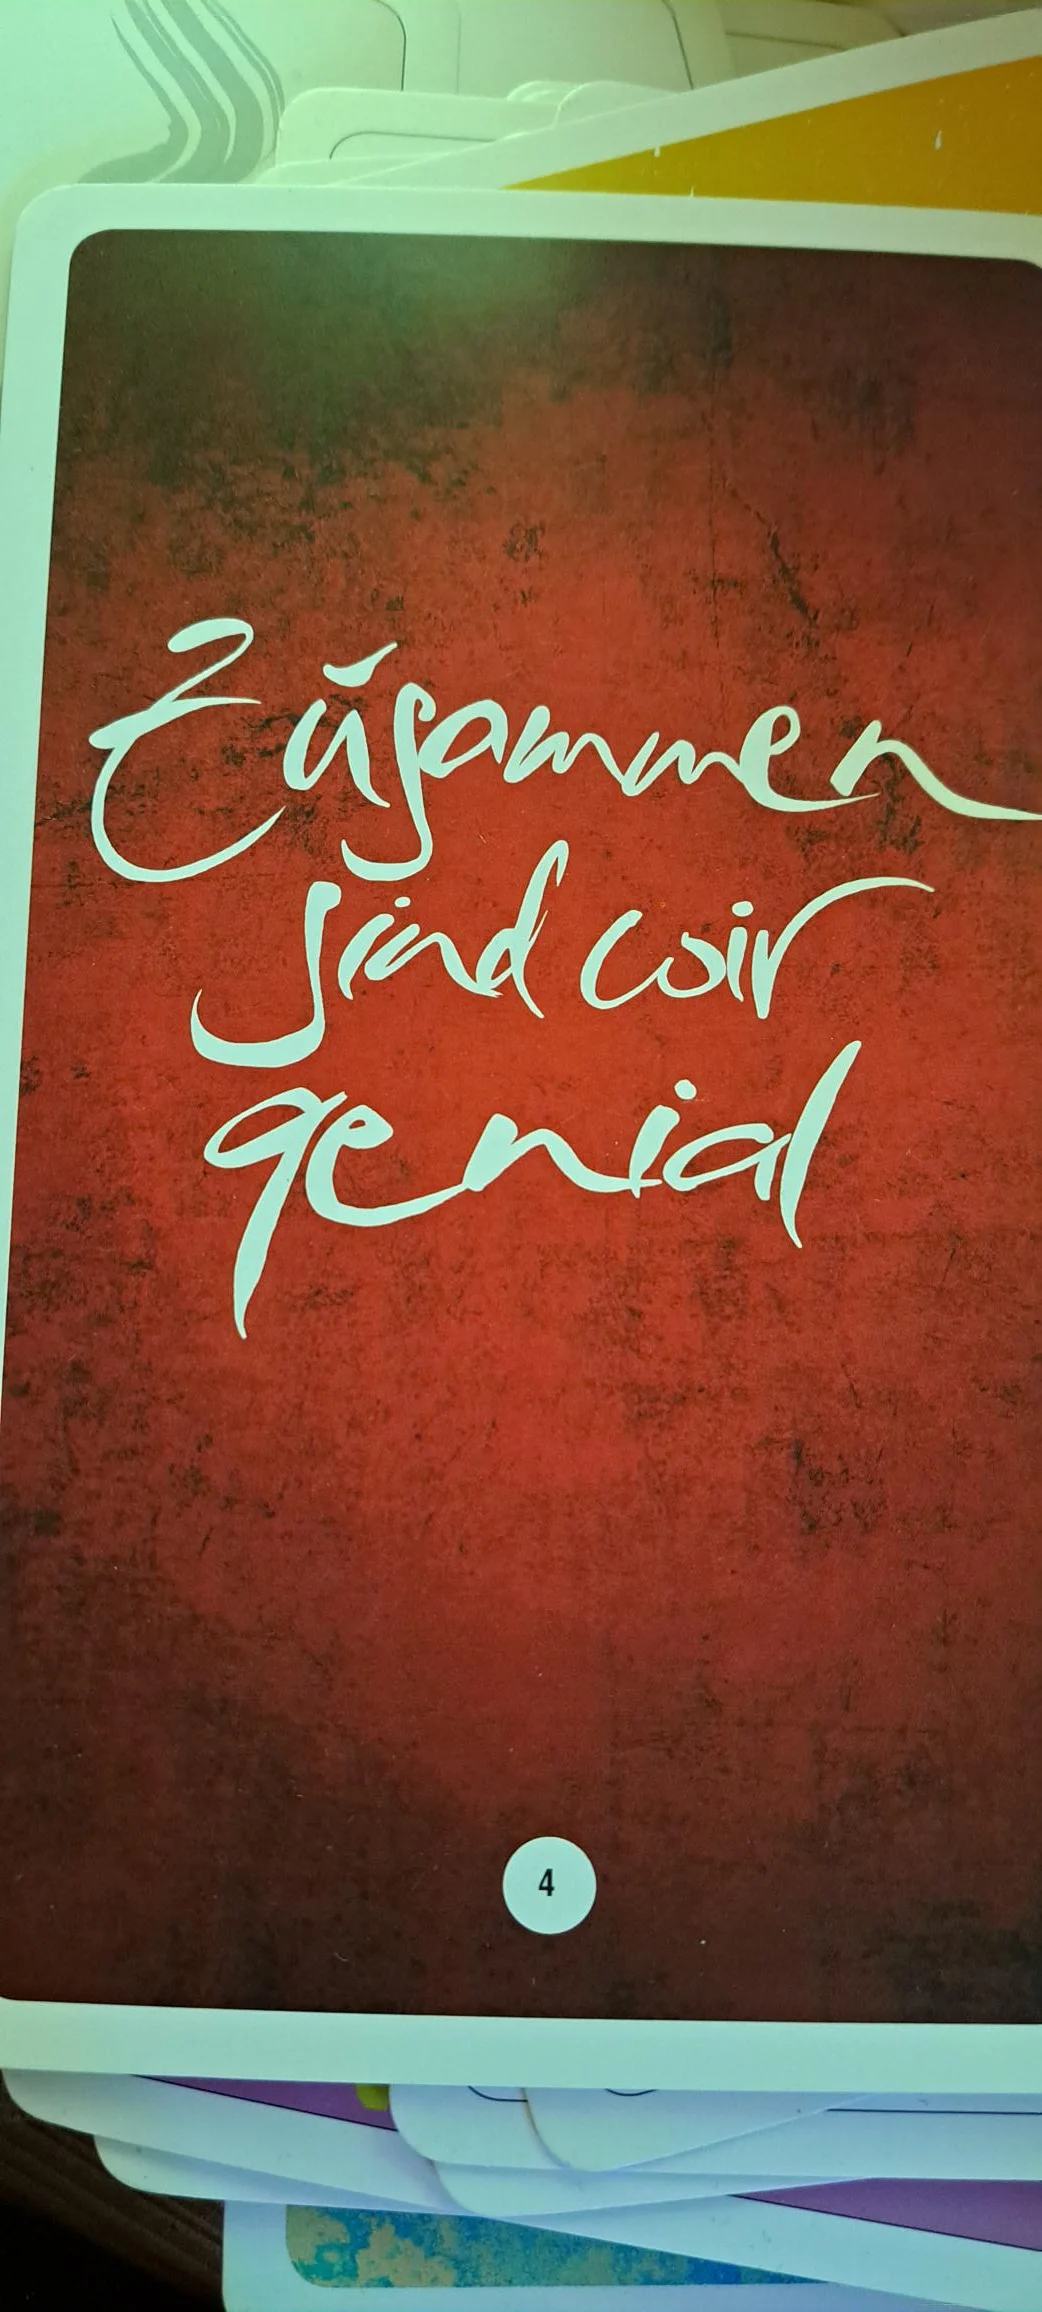 Zusammen
sind wir
genial
4